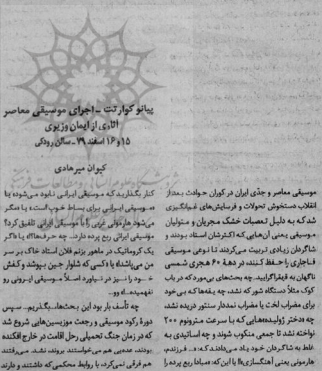 پیانو کوارتت ـ اجرای موسیقی معاصر
آثاری از ایمان وزیری
۱۵ و ۱۶ اسفند ۷۹ ـ سالن رودکی
کیوان میرهادی
موسیقی معاصر و جدّی ایران در کوران حوادث بعد از
انقلاب دستخوش تحولات و فرسایش‌های غم‌انگیزی
شد که به دلیل تعصبات خشک مجریان و متولیان
موسیقی یعنی آن‌هایی که اکثرشان استاد بودند و
شاگردان زیادی تربیت می‌کردند تا نوعی موسیقی
قاجاری را حفظ کنند، در دههٔ ۶۰ هجری شمسی
ناگهان به قهقرا گرایید. چه بحث‌هایی می‌شد که در باب
کوک مثلاً دستگاه شور که نشد، چه یقه‌ها که به‌خود
برای مضراب لخت یا مضراب نمددار سنتور دریده نشد،
چه دختر ژولیده‌هایی که با سرعت مترونوم ۲۰۰
نواخته نشد تا جمعی منکوب شوند و چه اساتیدی به
غلط به شاگردان خود یاد می‌دادند که: «... فرزندم،
هارمونی یعنی آهنگسازی»! یا این‌که: «مبادا ربع پرده را
کنار بگذارید که موسیقی ایرانی نابود می‌شود» یا
«موسیقی ایرانی برای بساط خوب است» یا «مگر
می‌شود هارمونی غربی را با موسیقی ایرانی تلفیق کرد؟
مؤسیقی ایرانی ربع پرده دارد. چه حرف‌ها!؟» یا «اگر
یک کروماتیک در ماهور بزنم فلان استاد خاک بر سر
من می‌پاشد!» یا «کسی که شلوار جین بپوشد و کفش
خود را در نیاورد اصلاً موسیقی ایرونی رو
نفهمیده...» و...
چه تأسف بار بود این بحث‌ها، بگذریم... سپس
دورهٔ رکود موسیقی و رجعت موزیسین‌هایی شروع شد
که در زمان جنگ تحمیلی رحل اقامت در خارج افکنده
بودند. مدعی هم می‌خواستند بروند، نشد. می‌رفتند
هم فرقی نمی‌کرد، با روابط محکمی که داشتند و دارند